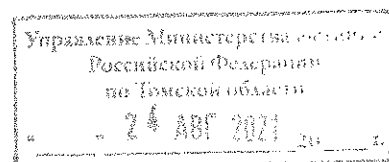 Управление Министерства
Российской Федерации
по Томской области
" " 24 АВГ 2021 20 г.